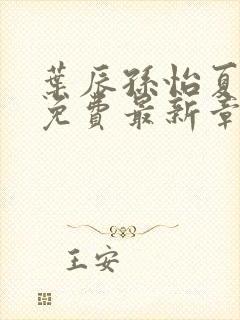 葉辰孫怡夏
免費最新章
王安